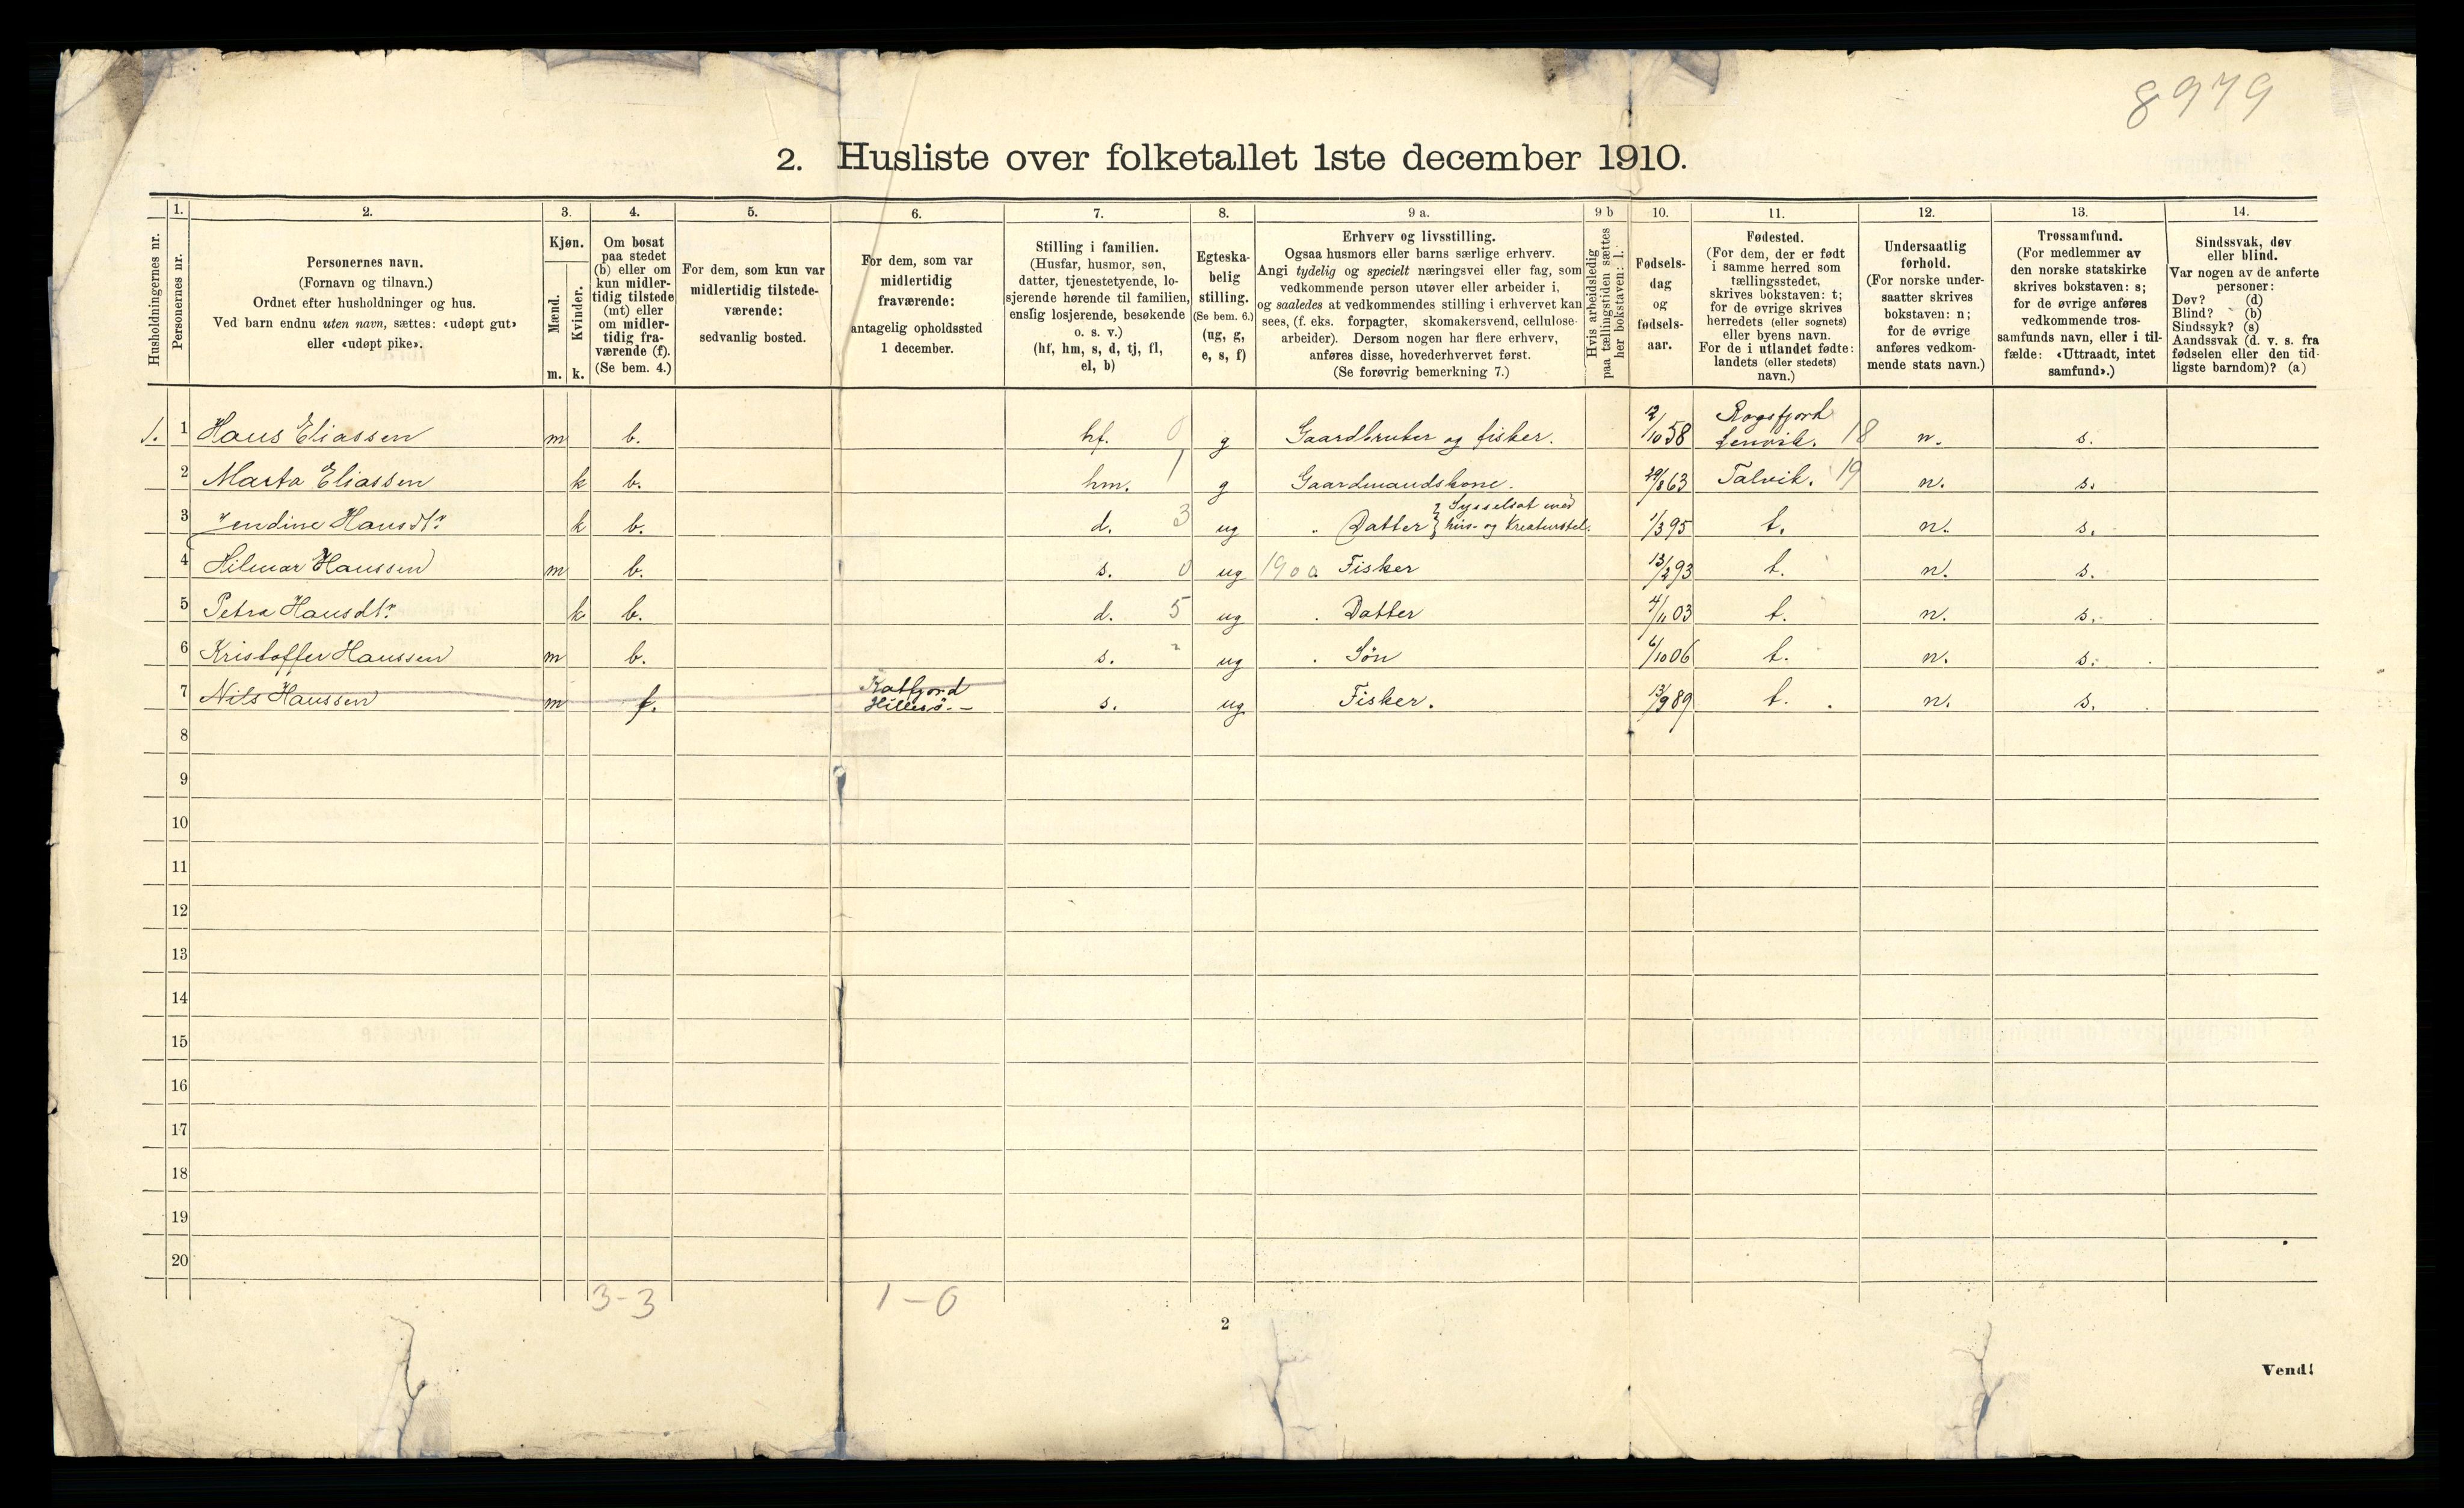 8979
2. Husliste over folketallet 1ste december 1910.
Husholdningernes nr.
1.
Personernes nr.
2.
Personernes navn.
(Fornavn og tilnavn.)
Ordnet efter husholdninger og hus.
Ved barn endnu uten navn, sættes: «udøpt gut»
eller «udøpt pike».
3.
Kjøn.
Mænd.
Kvinder.
m. k.
4.
Om bosat
paa stedet
(b) eller om
kun midler-
tidig tilstede
(mt) eller
om midler-
tidig fra-
værende (f).
(Se bem. 4.)
5.
For dem, som kun var
midlertidig tilstede-
værende:
sedvanlig bosted.
6.
For dem, som var
midlertidig
fraværende:
antagelig opholdssted
1 december.
7.
Stilling i familien.
(Husfar, husmor, søn,
datter, tjenestetyende, lo-
sjerende hørende til familien,
enslig losjerende, besøkende
o. s. v.)
(hf, hm, s, d, tj, fl,
el, b)
8.
Egteska-
belig
stilling.
(Se bem. 6.)
(ug, g,
e, s, f)
9 a.
Erhverv og livsstilling.
Ogsaa husmors eller barns særlige erhverv.
Angi tydelig og specielt næringsvei eller fag, som
vedkommende person utøver eller arbeider i,
og saaledes at vedkommendes stilling i erhvervet kan
sees, (f. eks. forpagter, skomakersvend, cellulose-
arbeider). Dersom nogen har flere erhverv,
anføres disse, hovederhvervet først.
(Se forøvrig bemerkning 7.)
9 b
Hvis arbeidsledig
paa tællingstiden sættes
her bokstaven: l.
10.
Fødsels-
dag
og
fødsels-
aar.
11.
Fødested.
(For dem, der er født
i samme herred som
tællingsstedet,
skrives bokstaven: t;
for de øvrige skrives
herredets (eller sognets)
eller byens navn.
For de i utlandet fødte:
landets (eller stedets)
navn.)
12.
Undersaatlig
forhold.
(For norske under-
saatter skrives
bokstaven: n;
for de øvrige
anføres vedkom-
mende stats navn.)
13.
Trossamfund.
(For medlemmer av
den norske statskirke
skrives bokstaven: s;
for de øvrige anføres
vedkommende tros-
samfunds navn, eller i til-
fælde: «Uttraadt, intet
samfund».)
14.
Sindssvak, døv
eller blind.
Var nogen av de anførte
personer:
Døv? (d)
Blind? (b)
Sindssyk? (s)
Aandssvak (d. v. s. fra
fødselen eller den tid-
ligste barndom)? (a)
1. 1 Hans Eliassen m b. hf. 0 g Gaardbruker og fisker. 12/10 58 Rogsfjord Lenvik. 18 n. s.
2 Marta Eliassen k b. hm. 1 g Gaardmandskone. 29/8 63 Talvik. 19 n. s.
3 Jendine Hansdtr k b. d. 3 ug Datter } Sysselsat med hus- og Kreaturstel. 1/3 95 t. n. s.
4 Hilmar Hanssen m b. s. 0 ug 190 a Fisker 13/2 93 t. n. s.
5 Petra Hansdtr k b. d. 5 ug Datter 4/11 03 t. n. s.
6 Kristoffer Hanssen m b. s. ug Søn 6/10 06 t. n. s.
7 Nils Hanssen m f. Katfjord Hillesö.- s. ug Fisker. 13/9 89 t. n. s.
8
9
10
11
12
13
14
15
16
17
18
19
20
3-3 1-0
2
Vend!